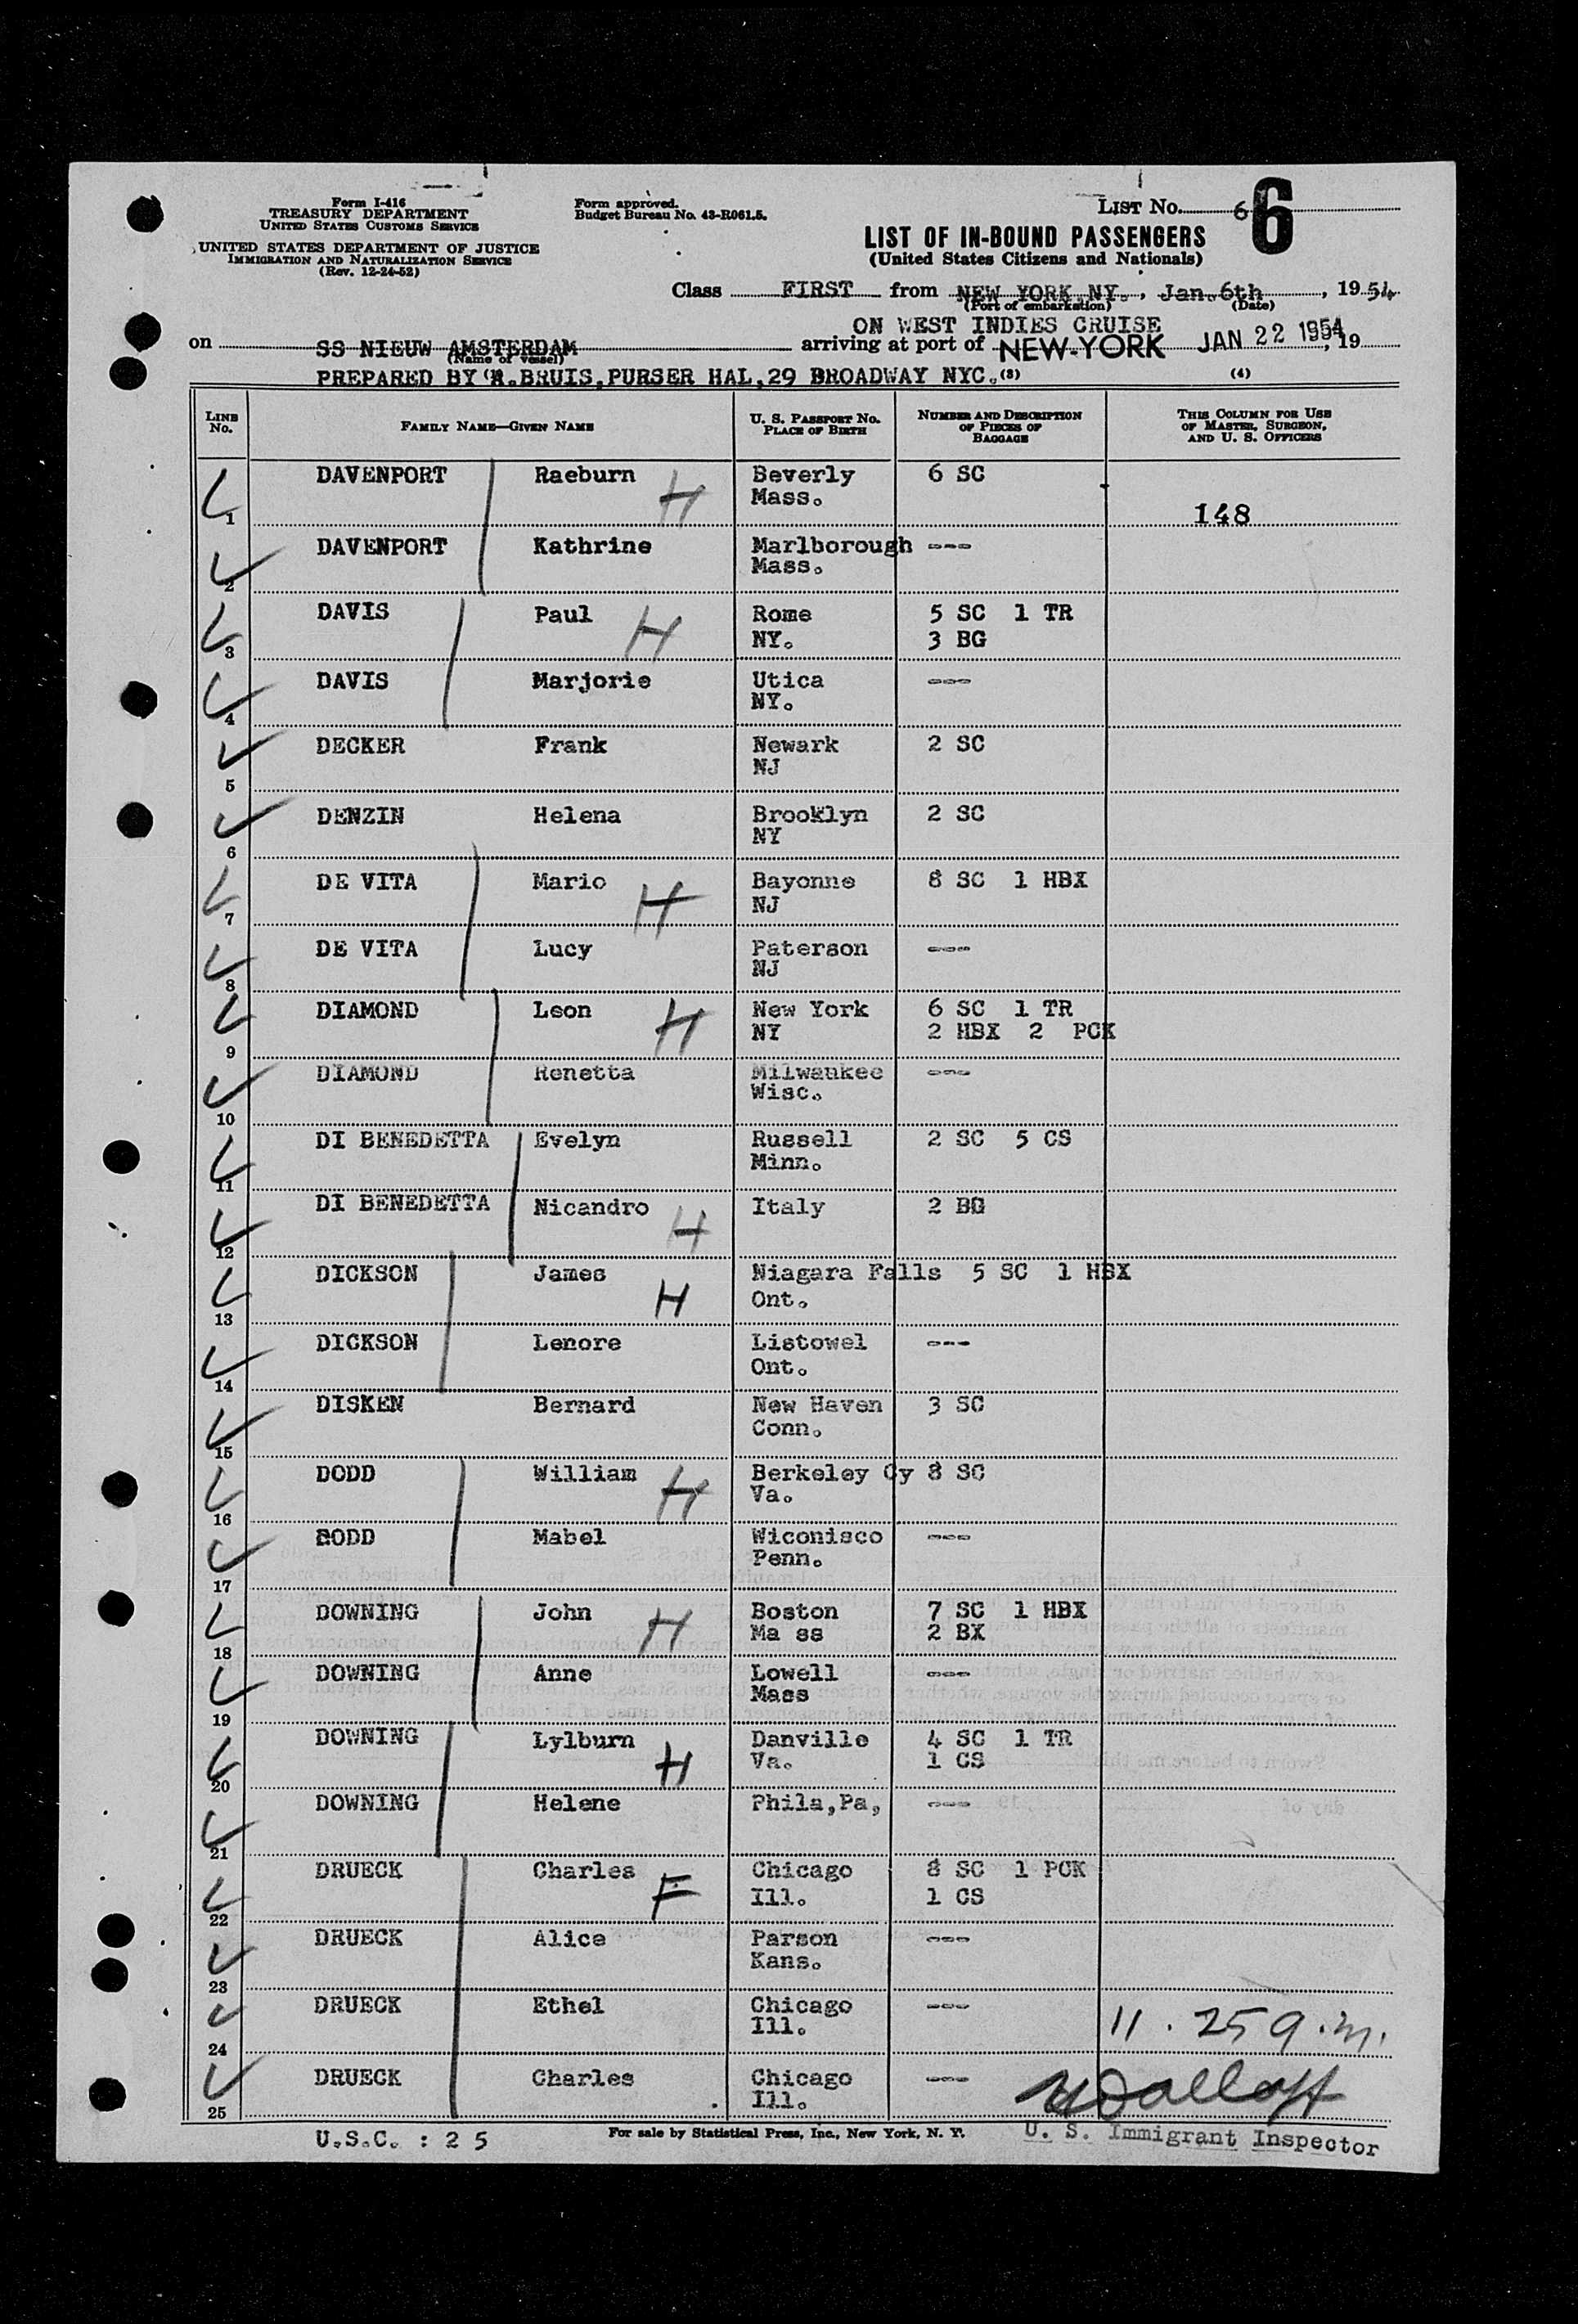 Form I-416
TREASURY DEPARTMENT
UNITED STATES CUSTOMS SERVICE
UNITED STATES DEPARTMENT OF JUSTICE
IMMIGRATION AND NATURALIZATION SERVICE
(Rev. 12-24-52)
Form approved.
Budget Bureau No. 43-R061.5.
LIST No. 6 6
LIST OF IN-BOUND PASSENGERS
(United States Citizens and Nationals)
Class FIRST from NEW YORK.NY. , Jan.6th , 1954
(Port of embarkation) (Date)
ON WEST INDIES CRUISE
on SS NIEUW AMSTERDAM arriving at port of NEW-YORK JAN 22 1954, 19
(Name of vessel)
PREPARED BY R.BRUIS,PURSER HAL,29 BROADWAY NYC. (3) (4)
LINE No. FAMILY NAME—GIVEN NAME U. S. PASSPORT No. PLACE OF BIRTH NUMBER AND DESCRIPTION OF PIECES OF BAGGAGE THIS COLUMN FOR USE OF MASTER, SURGEON, AND U. S. OFFICERS
DAVENPORT Raeburn H Beverly 6 SC
Mass.
1 148
DAVENPORT Kathrine Marlborough ---
2 Mass.
DAVIS Paul H Rome 5 SC 1 TR
3 NY. 3 BG
DAVIS Marjorie Utica ---
4 NY.
DECKER Frank Newark 2 SC
5 NJ
DENZIN Helena Brooklyn 2 SC
6 NY
DE VITA Mario H Bayonne 8 SC 1 HBX
7 NJ
DE VITA Lucy Paterson ---
8 NJ
DIAMOND Leon H New York 6 SC 1 TR
9 NY 2 HBX 2 PCK
DIAMOND Renetta Milwaukee ---
10 Wisc.
DI BENEDETTA Evelyn Russell 2 SC 5 CS
11 Minn.
DI BENEDETTA Nicandro H Italy 2 BG
12
DICKSON James H Niagara Falls 5 SC 1 HBX
13 Ont.
DICKSON Lenore Listowel ---
14 Ont.
DISKEN Bernard New Haven 3 SC
15 Conn.
DODD William H Berkeley Cy 8 SC
16 Va.
DODD Mabel Wiconisco ---
17 Penn.
DOWNING John H Boston 7 SC 1 HBX
18 Ma ss 2 BX
DOWNING Anne Lowell ---
19 Mass
DOWNING Lylburn H Danville 4 SC 1 TR
20 Va. 1 CS
DOWNING Helene Phila,Pa, ---
21
DRUECK Charles F Chicago 8 SC 1 PCK
22 Ill. 1 CS
DRUECK Alice Parson ---
23 Kans.
DRUECK Ethel Chicago ---
24 Ill. 11.25 a.m.
DRUECK Charles Chicago ---
25 Ill.
U.S.C. : 25 For sale by Statistical Press, Inc., New York, N. Y. U. S. Immigrant Inspector